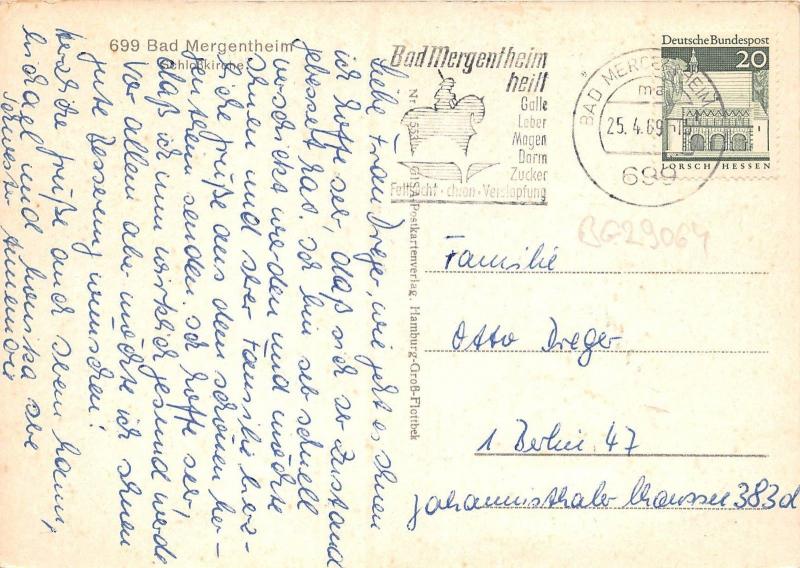 699 Bad Mergentheim
Schloßkirche
Bad Mergentheim
heilt
Galle
Leber
Magen
Darm
Zucker
Fettsucht · chron · Verstopfung
BAD MERGENTHEIM
25. 4. 69
699
Deutsche Bundespost
20
LORSCH HESSEN
BG29064
Liebe Frau Dreger, wie geht es Ihnen
ich hoffe sehr, daß sich Ihr Zustand
gebessert hat. Ich bin so schnell
verschickt worden und möchte
Ihnen und Ihrer Familie herz-
liche Grüße aus dem schönen
senden. Ich hoffe sehr,
daß ich nun wirklich gesund werde
Vor allem aber möchte ich Ihnen
gute Besserung wünschen!
herzliche Grüße auch
und Monika Ihre
Schwester Annemarie
GISA-Postkartenverlag, Hamburg-Groß-Flottbek
Familie
Otto Dreger
1 Berlin 47
Johannisthaler Chaussee 383d